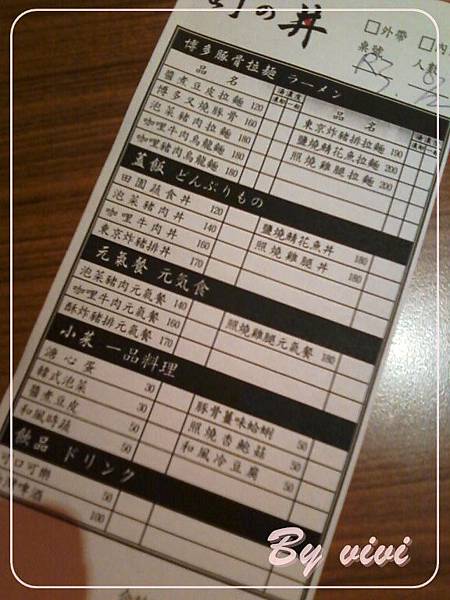 の丼
□外帶 □內
桌號 人數
R3.
博多豚骨拉麵 ラーメン
品名
醬煮豆皮拉麵 120
博多叉燒豚骨 160
泡菜豬肉拉麵 160
咖哩牛肉烏龍麵 180
咖哩豬肉烏龍麵 180
品名
東京炸豬排拉麵 190
鹽燒鯖花魚拉麵 200
照燒雞腿拉麵 200
蓋飯 どんぶりもの
田園蔬食丼 120
泡菜豬肉丼 140
咖哩牛肉丼 160
東京炸豬排丼 170
鹽燒鯖花魚丼 180
照燒雞腿丼 180
元氣餐 元気食
泡菜豬肉元氣餐 140
咖哩牛肉元氣餐 160
酥炸豬排元氣餐 170
照燒雞腿元氣餐 180
小菜 一品料理
溏心蛋 30
韓式泡菜 30
醬煮豆皮 50
和風時蔬 50
豚骨薑味蛤蜊 50
照燒杏鮑菇 50
和風冷豆腐 50
飲品 ドリンク
口可樂 50
啤酒 100
By vivi